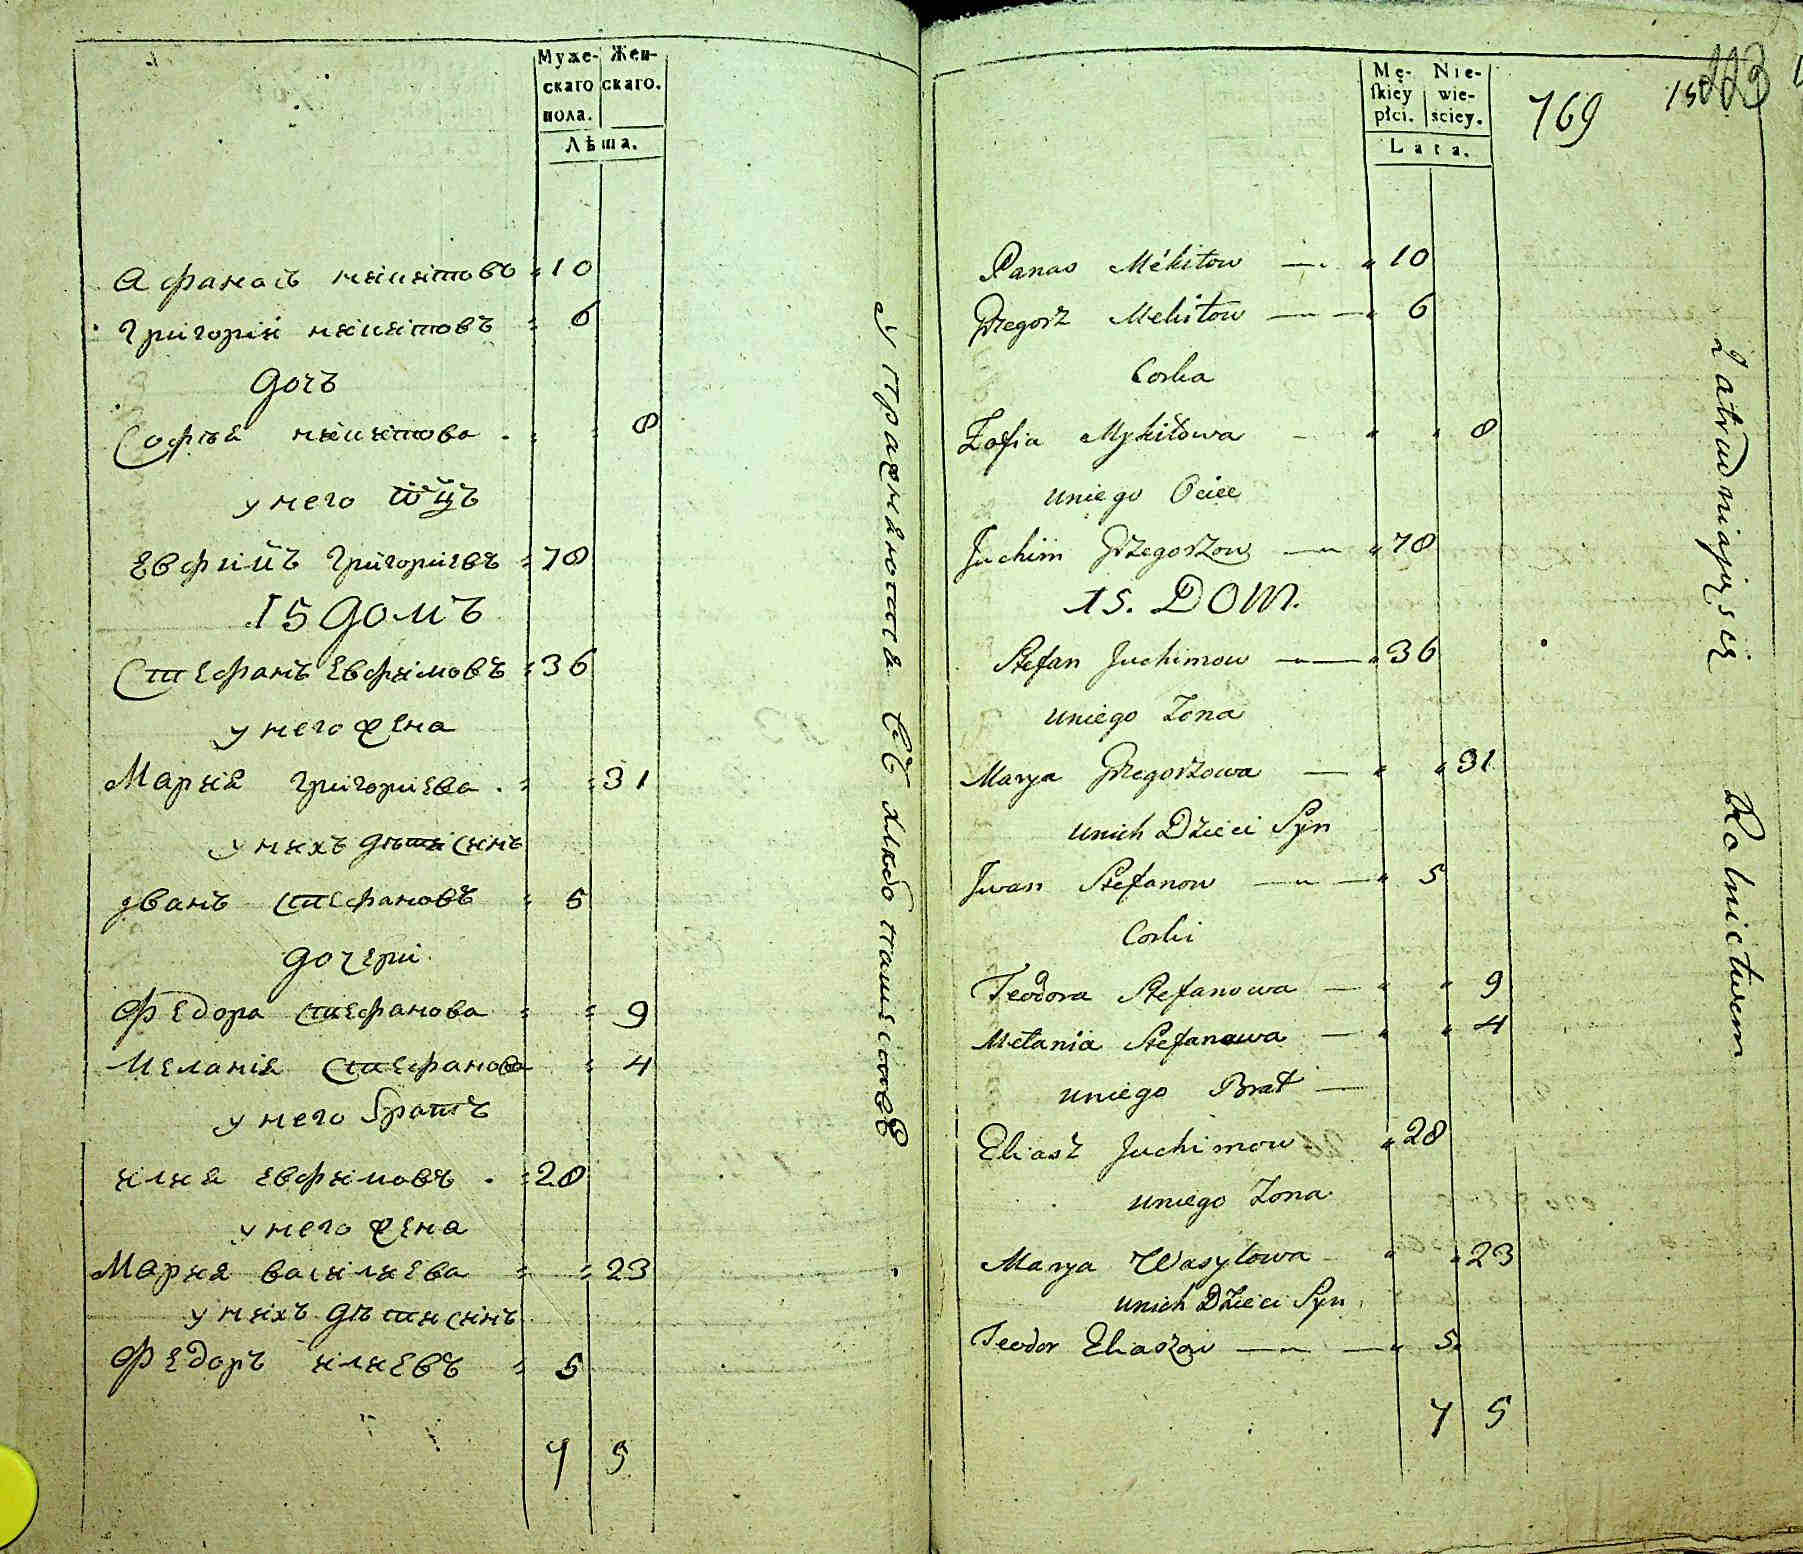 Муже- Жен-
скаго скаго.
пола.
Лѣта.
Афанасъ никитовъ 10
Григорій никитовъ 6
Дочь
Софія никитова 8
у него ѿц̃ъ
Евфимъ Григориевъ 78
15 домъ
Стефанъ Евфимовъ 36
у него жена
Мариа Григориева 31
у нихъ дѣти синъ
Иванъ Стефановъ 5
Дочери
Федора Стефанова 9
Меланіа Стефанова 4
у него братъ
илиа Евфимовъ 28
у него жена
Мариа василиева 23
у нихъ дѣти синъ
Федоръ илиевъ 5
7 5
Упражняются въ хлѣбопашествѣ
Mę- Nie-
skiey wie-
płci. sciey.
Lata.
769
223
Panas Mékitow 10
Grzegorz Mekitow 6
Corka
Zofia Mykitowa 8
uniego Ociec
Juchim Grzegorzow 78
15. DOM.
Stefan Juchimow 36
uniego Zona
Marya Grzegorzowa 31
unich Dzieci Syn
Jwan Stefanow 5
Corki
Teodora Stefanowa 9
Metania Stefanowa 4
uniego Brat
Eliasz Juchimow 28
uniego Zona
Marya Wasylowa 23
unich Dzieci Syn
Teodor Eliaszow 5
7 5
Zatrudniają się Rolnictwem